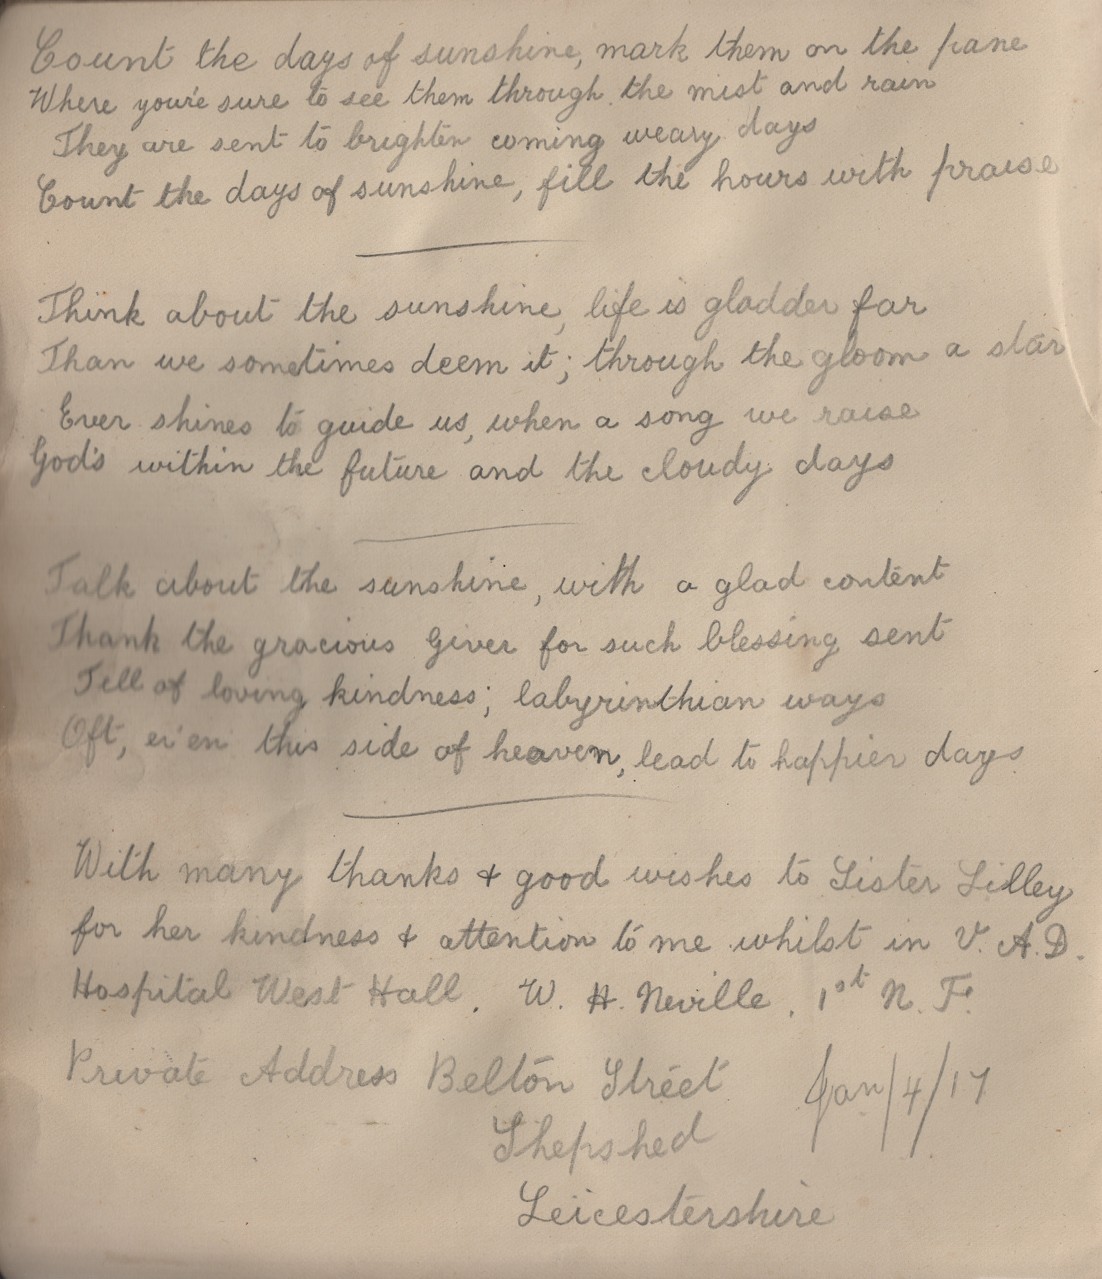 Count the days of sunshine, mark them on the pane
Where you're sure to see them through the mist and rain
They are sent to brighten coming weary days
Count the days of sunshine, fill the hours with praise
Think about the sunshine, life is gladder far
Than we sometimes deem it; through the gloom a star
Ever shines to guide us, when a song we raise
God's within the future and the cloudy days
Talk about the sunshine, with a glad content
Thank the gracious Giver for such blessing sent
Tell of loving kindness; labyrinthian ways
Oft, ei'en this side of heaven, lead to happier days
With many thanks & good wishes to Sister Lilley
for her kindness & attention to me whilst in V. A.D.
Hospital West Hall. W. H. Neville. 1st N. F.
Private Address Belton Street Jan/4/17
Shepshed
Leicestershire